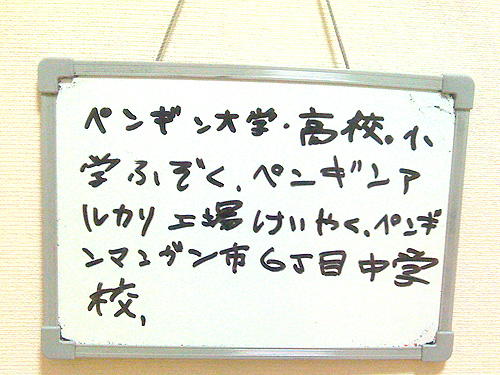 ペンギン大学・高校。小
学ふぞく、ペンギンア
ルカリ工場けいやく、ペンギ
ンマンガン市6丁目中学
校、